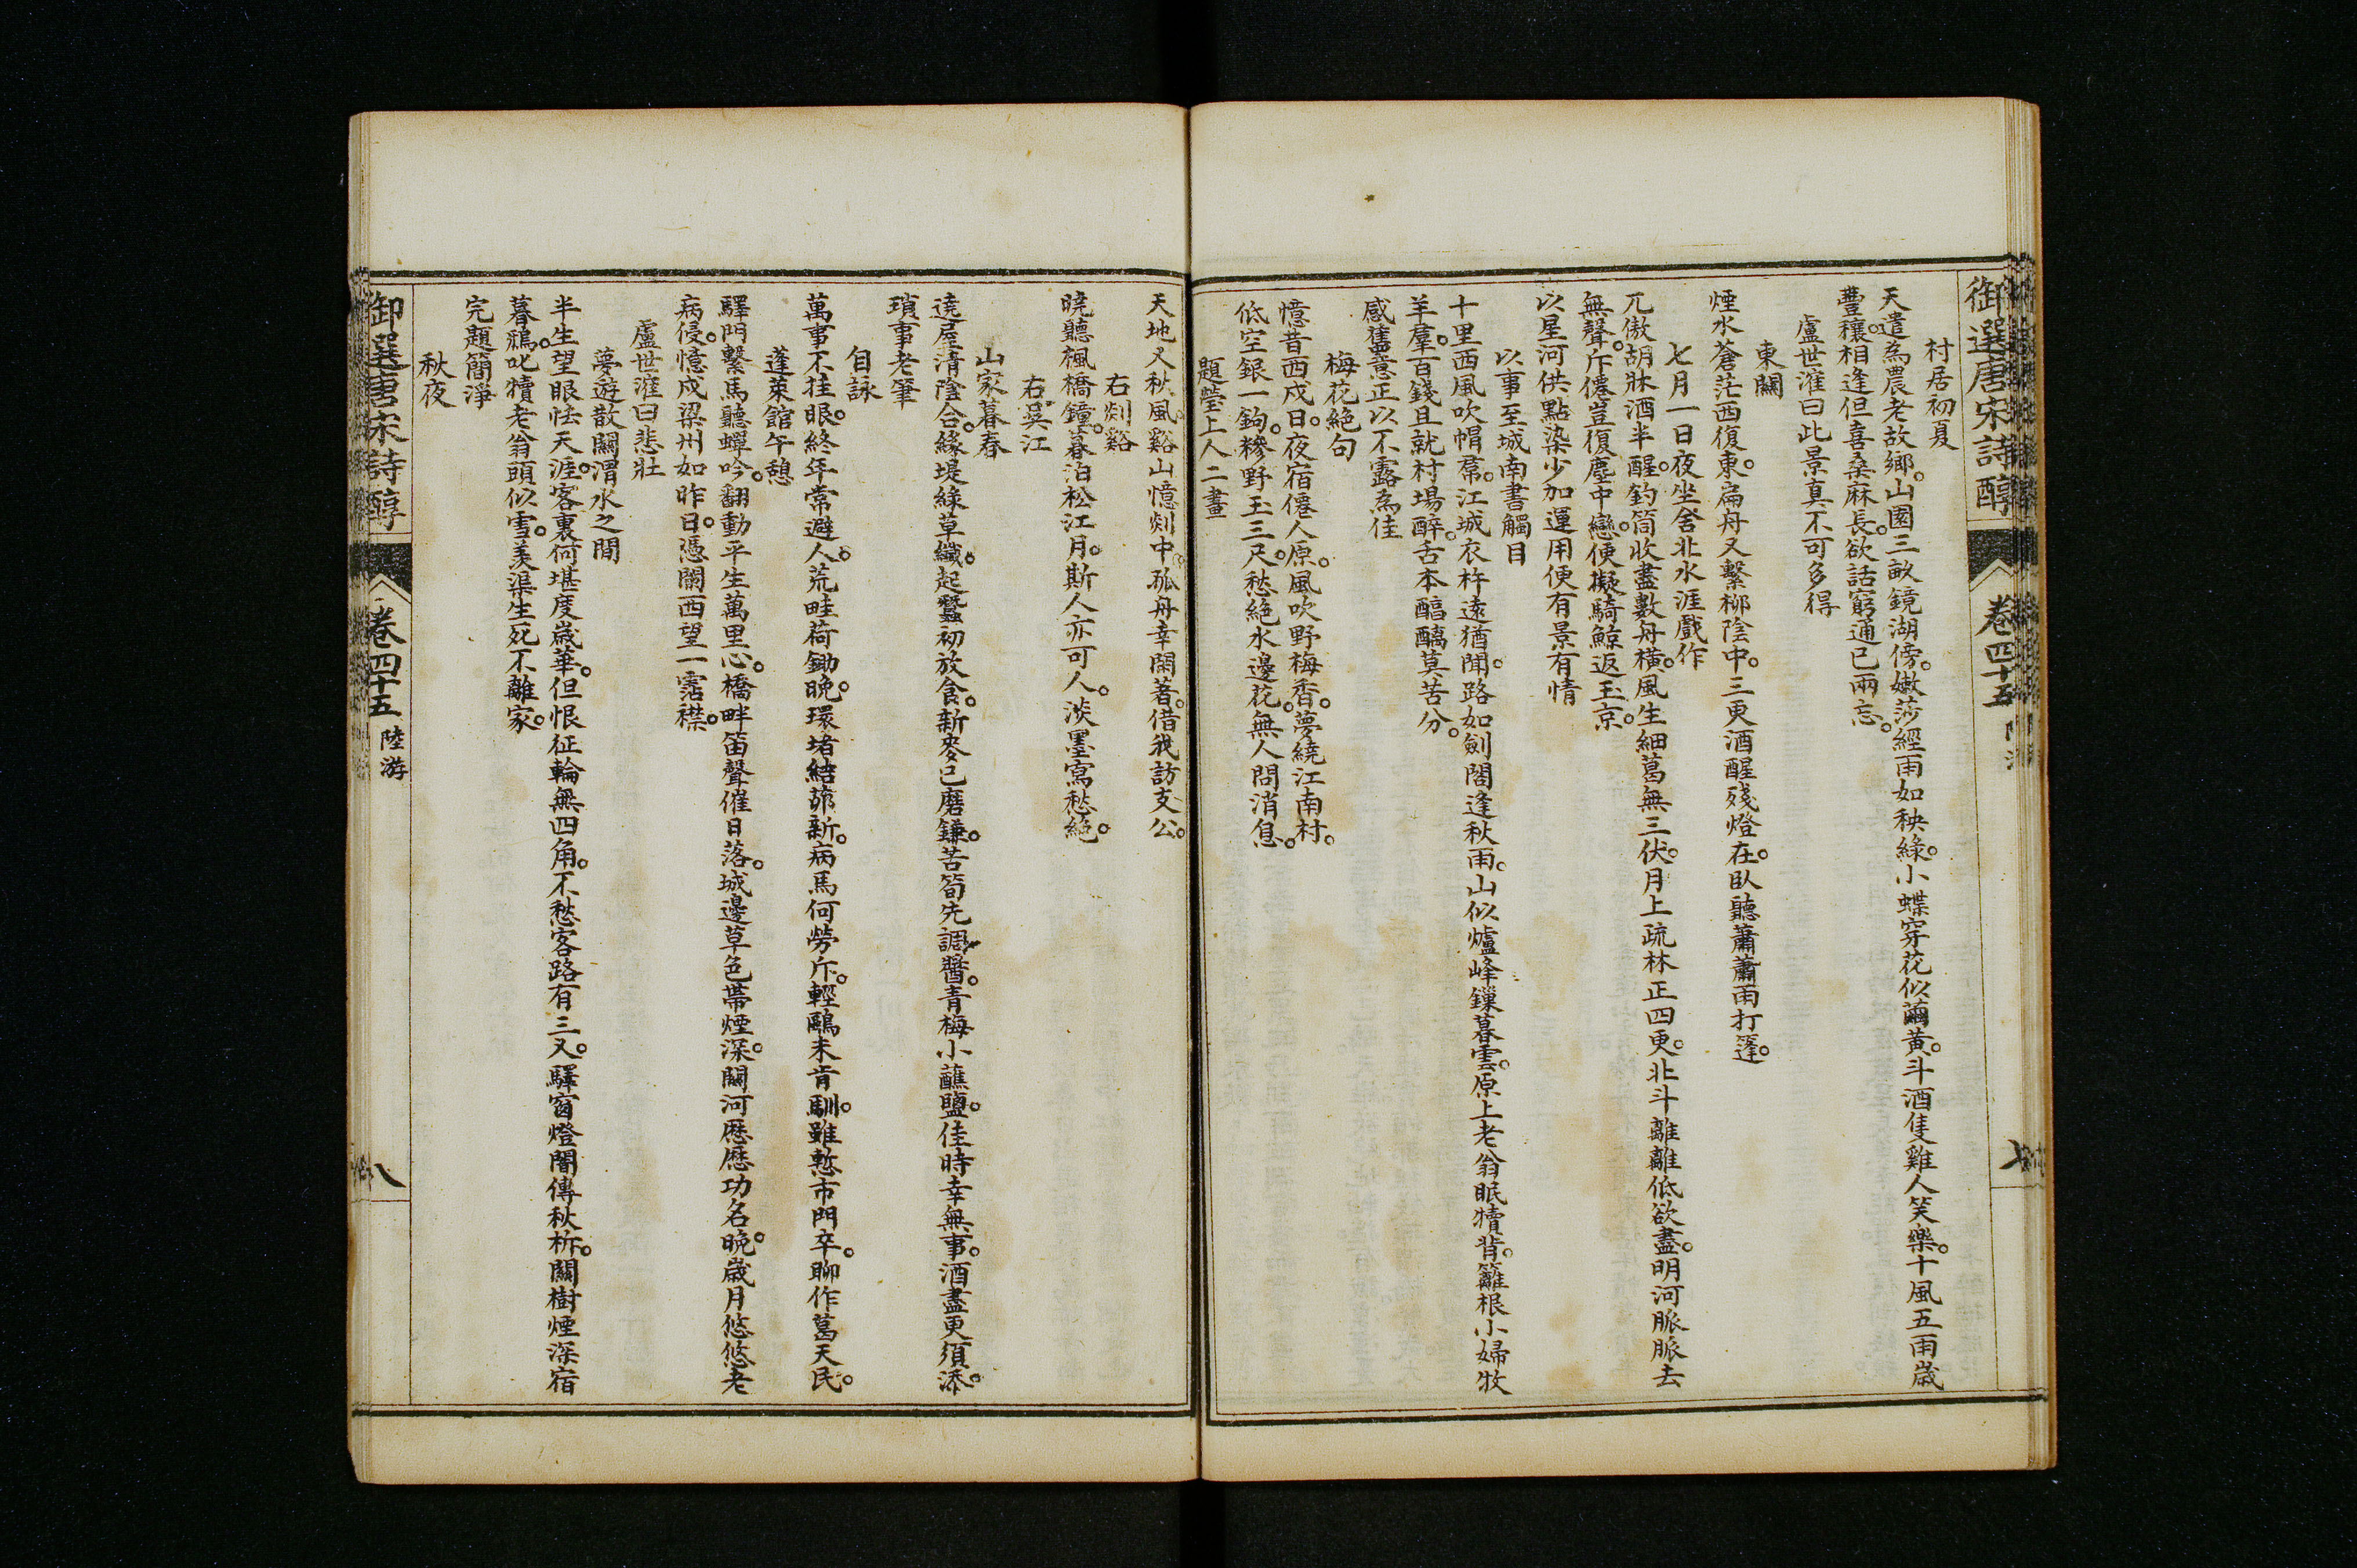 御選唐宋詩醇 卷四十五 七
村居初夏
天遣為農老故鄉山園三畝鏡湖傍嫩莎經雨如秧綠小蝶穿花似繭黃斗酒隻雞人笑樂十風五雨歲
豐穰相逢但喜桑麻長欲話窮通已兩忘
盧世㴶曰此景真不可多得
東關
煙水蒼茫西復東扁舟又繫柳陰中三更酒醒殘燈在臥聽蕭蕭雨打篷
七月一日夜坐舍北水涯戲作
兀傲胡牀酒半醒釣筒收盡數舟橫風生細葛無三伏月上疏林正四更北斗離離低欲盡明河脈脈去
無聲斥僊豈復塵中戀便擬騎鯨返玉京
以星河供點染少加運用便有景有情
以事至城南書觸目
十里西風吹帽帬江城衣杵遠猶聞路如劍閣逢秋雨山似爐峰鏁暮雲原上老翁眠犢背籬根小婦牧
羊羣百錢且就村場醉舌本醞醨莫苦分
感舊意正以不露為佳
梅花絕句
憶昔西戍日夜宿僊人原風吹野梅香夢繞江南村
低空銀一鉤糝野玉三尺愁絕水邊花無人問消息
題瑩上人二畫
天地又秋風谿山憶剡中孤舟幸閑著借我訪支公
右剡谿
曉聽楓橋鐘暮泊松江月斯人亦可人淡墨寫愁絕
右吳江
山家暮春
遶屋清陰合緣堤綠草纖起蠶初放食新麥已磨鎌苦筍先調醬青梅小蘸鹽佳時幸無事酒盡更須添
瑣事老筆
自詠
萬事不挂眼終年常避人荒畦荷鋤晚環堵結茆新病馬何勞斥輕鷗未肯馴雖慙市門卒聊作葛天民
蓬萊館午憩
驛門繫馬聽蟬吟翻動平生萬里心橋畔笛聲催日落城邊草色帶煙深關河歷歷功名晚歲月悠悠老
病侵憶戍梁州如昨日憑闌西望一霑襟
盧世㴶曰悲壯
夢遊散關渭水之間
半生望眼怯天涯客裏何堪度歲華但恨征輪無四角不愁客路有三叉驛窗燈闇傳秋柝關樹煙深宿
暮鴉叱犢老翁頭似雪羨渠生死不離家
完題簡淨
秋夜
御選唐宋詩醇 卷四十五 陸游 八